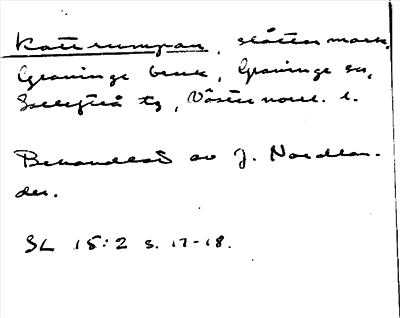 Katterumpan, slåttermark,
Graninge bruk, Graninge sn,
Sollefteå tg, Västernorrl. l.
Behandlat av J. Nordlan-
der.
SL 15:2 s. 17-18.